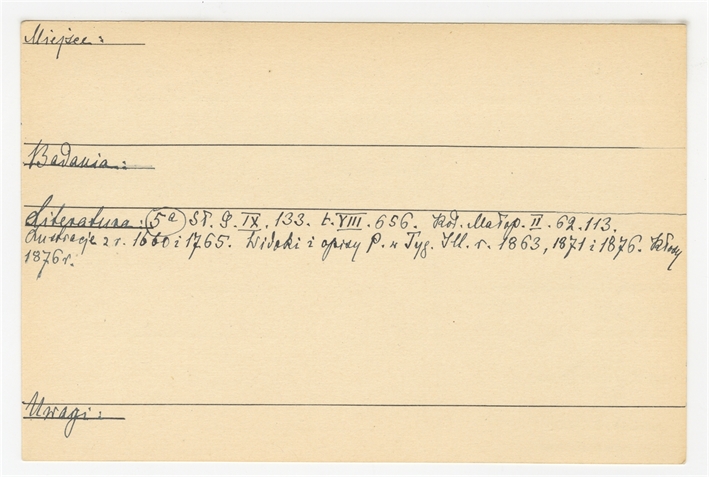 Miejsce:
Badania:
Literatura: 5a Sł. G. IX. 133. t. VIII. 656. Kod. Małop. II. 62. 113.
Lustracje z r. 1660 i 1765. Widoki i opisy P. w Tyg. Ill. r. 1863, 1871 i 1876. Kłosy
1876 r.
Uwagi: